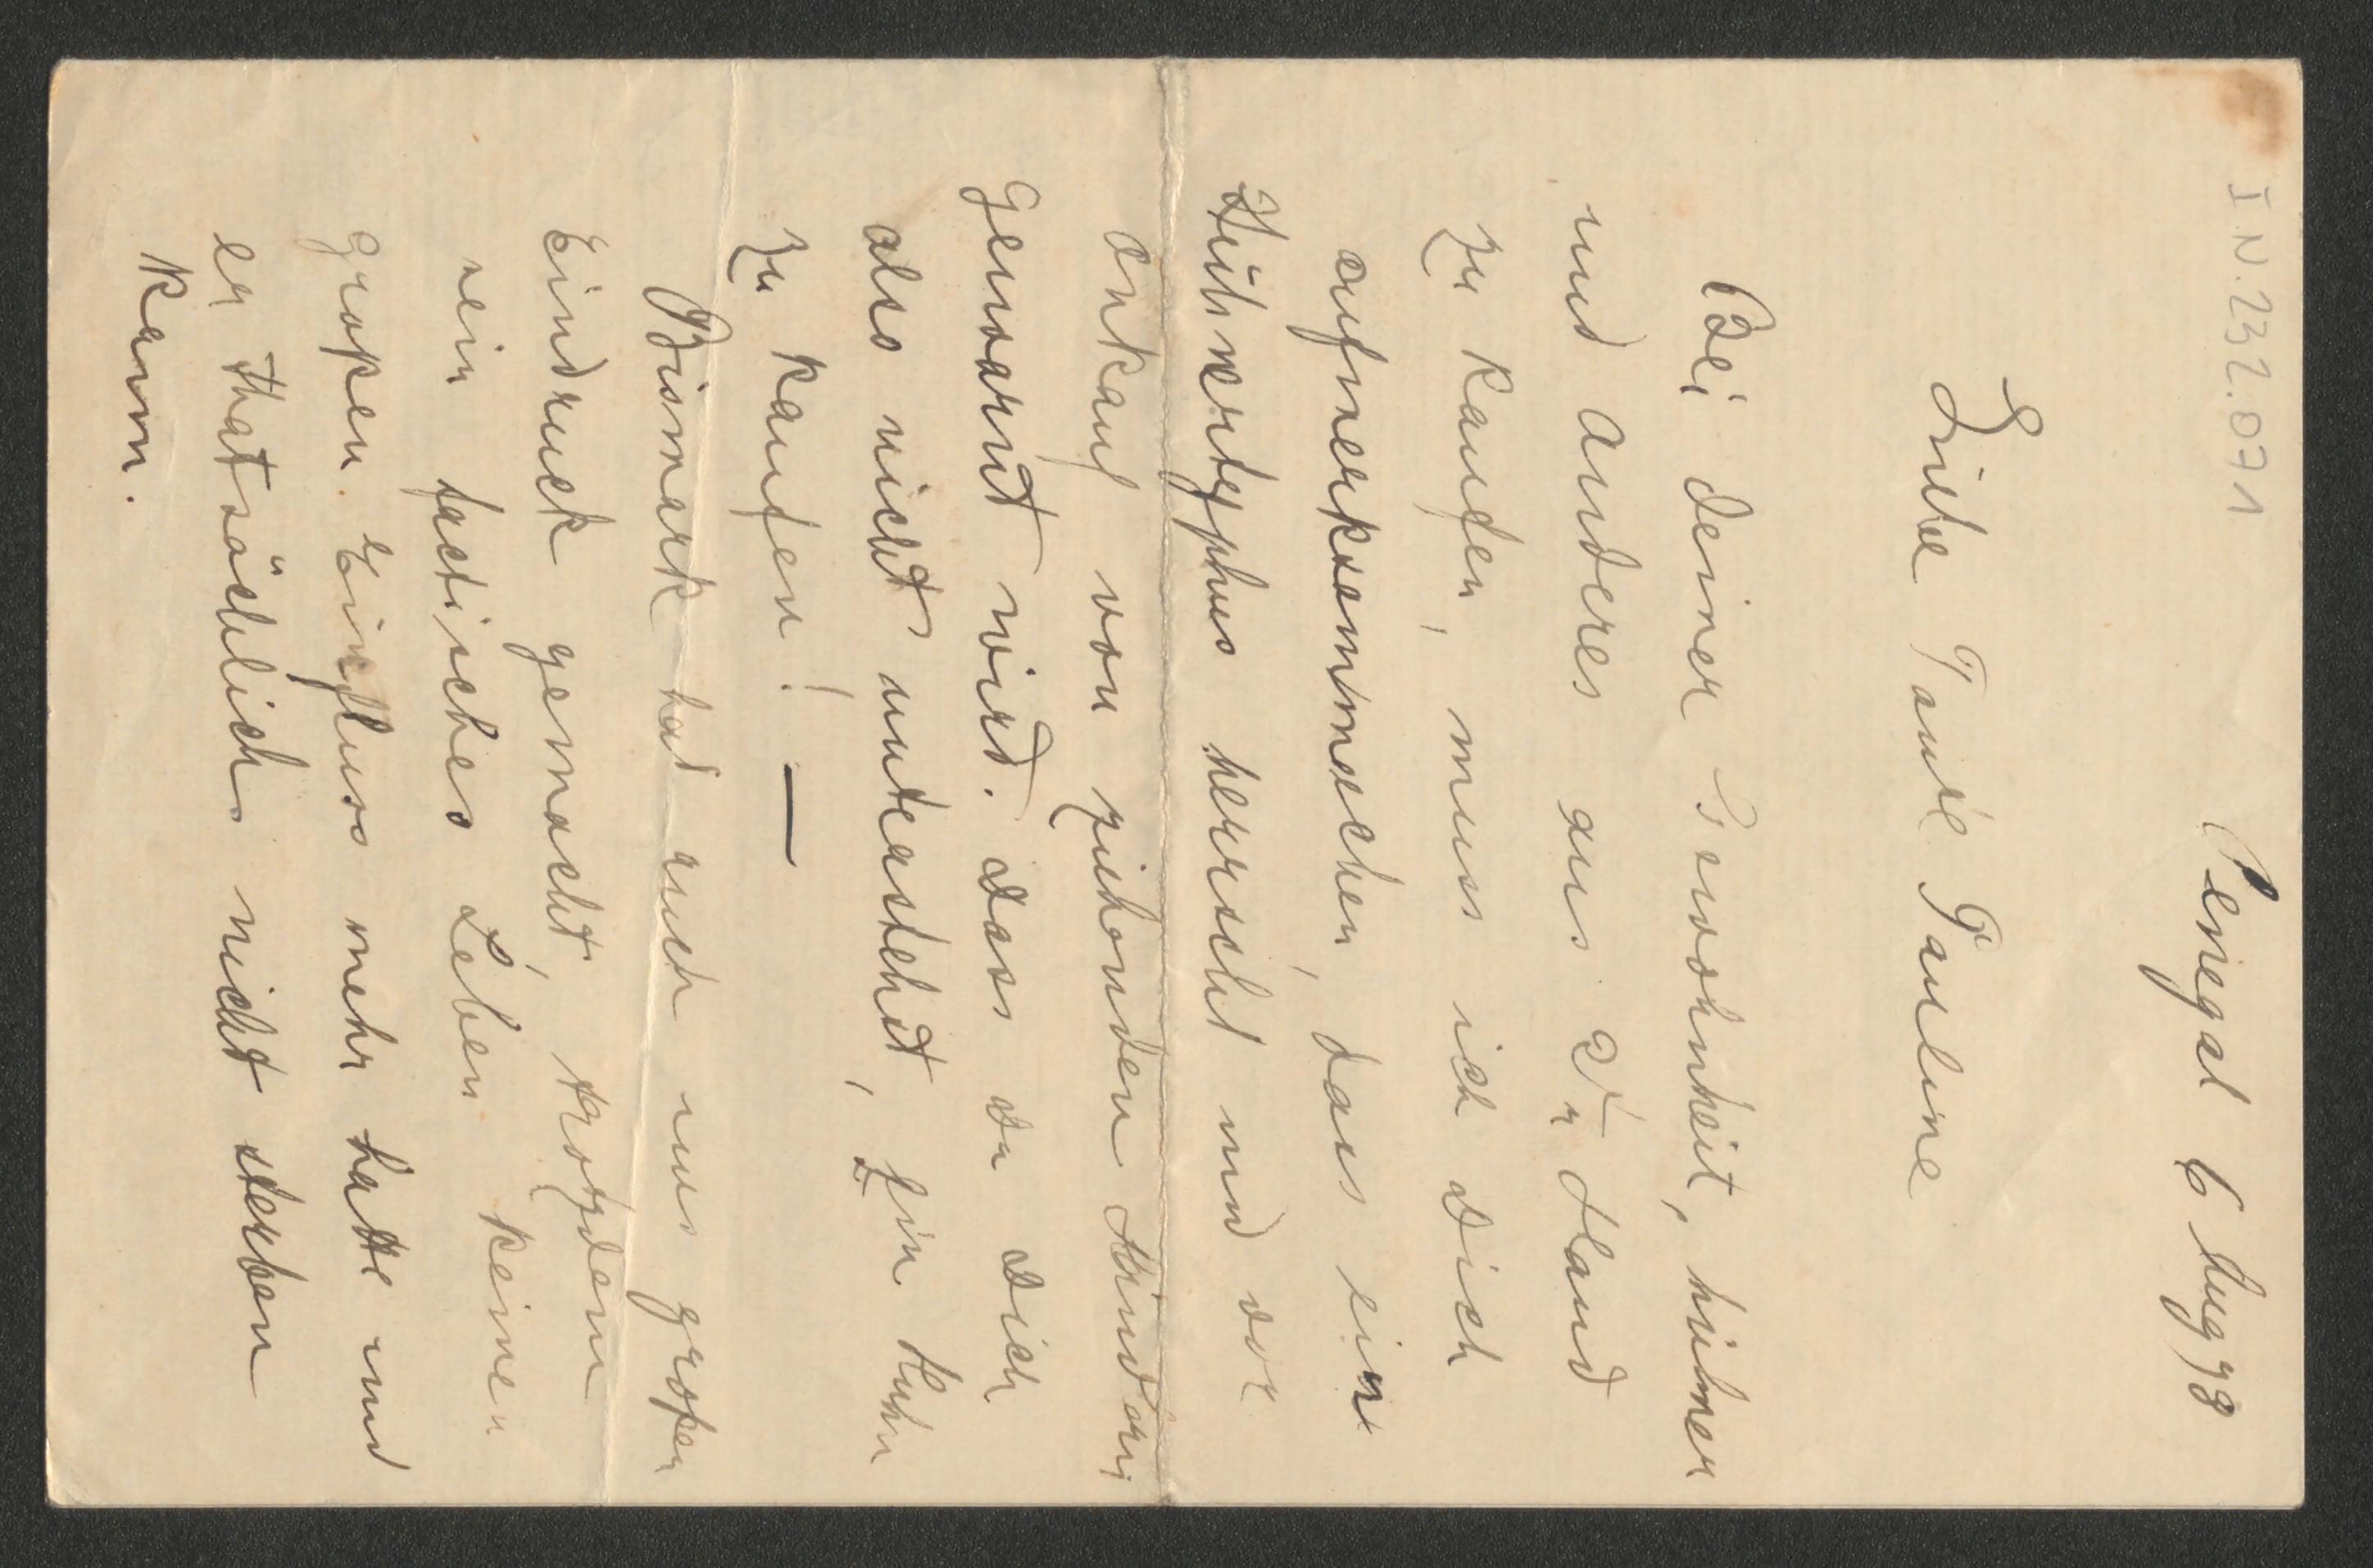 I N. 232.071
Penegal 6 Aug 98
Liebe Tante Pauline
Bei deiner Gewohnheit, hühner
und anderes aus 2ter Hand
zu kaufen, muss ich dich
aufmerksammachen, dass ein
Hühnertyphus herrscht und vor
Ankauf von ziehenden
gewarnt wird. Dass du dich
also nicht unterstehst, ein Huhn
zu kaufen! —
Bismark hat auch uns großen
Eindruck gemacht, trozdem
sein factisches Leben keinen
großen Einfluss mehr hatte und
er thatsächlich nicht sterben
kann.